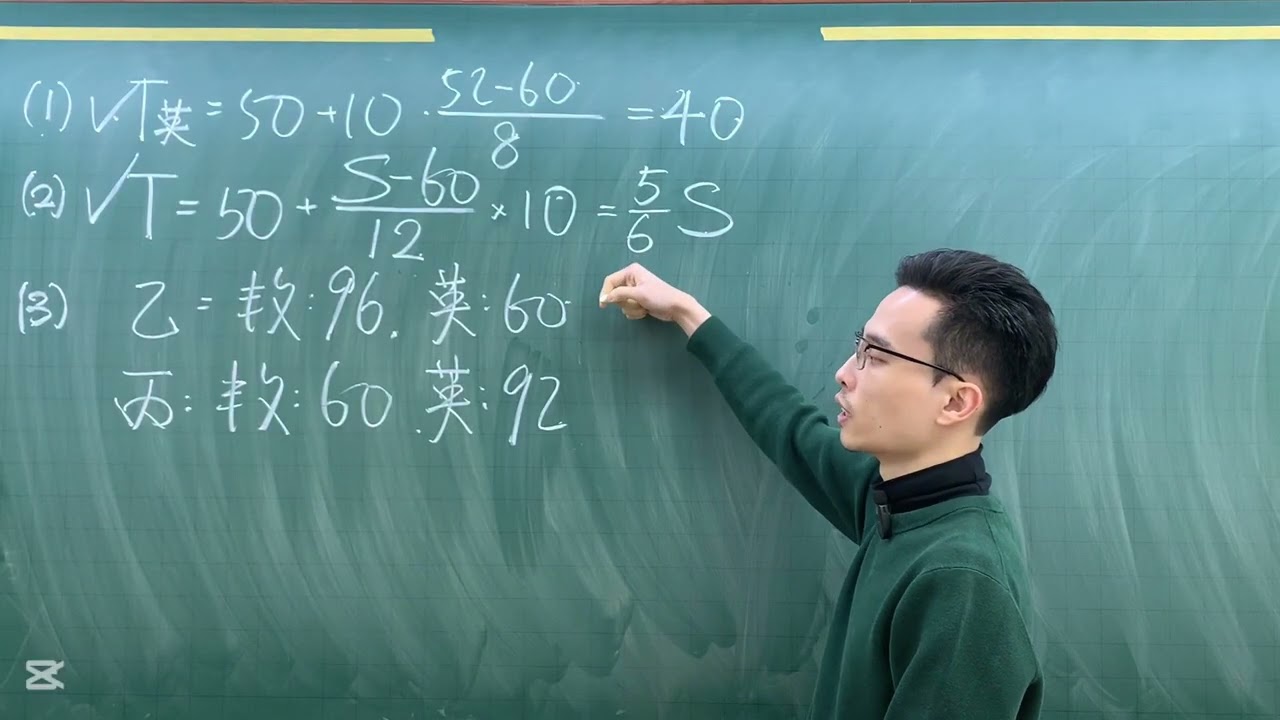 (1) √T英 = 50 + 10 · (52-60)/8 = 40
(2) √T = 50 + (S-60)/12 × 10 = 5/6 S
(3) 乙 = 数:96. 英:60
丙: 数:60 英:92